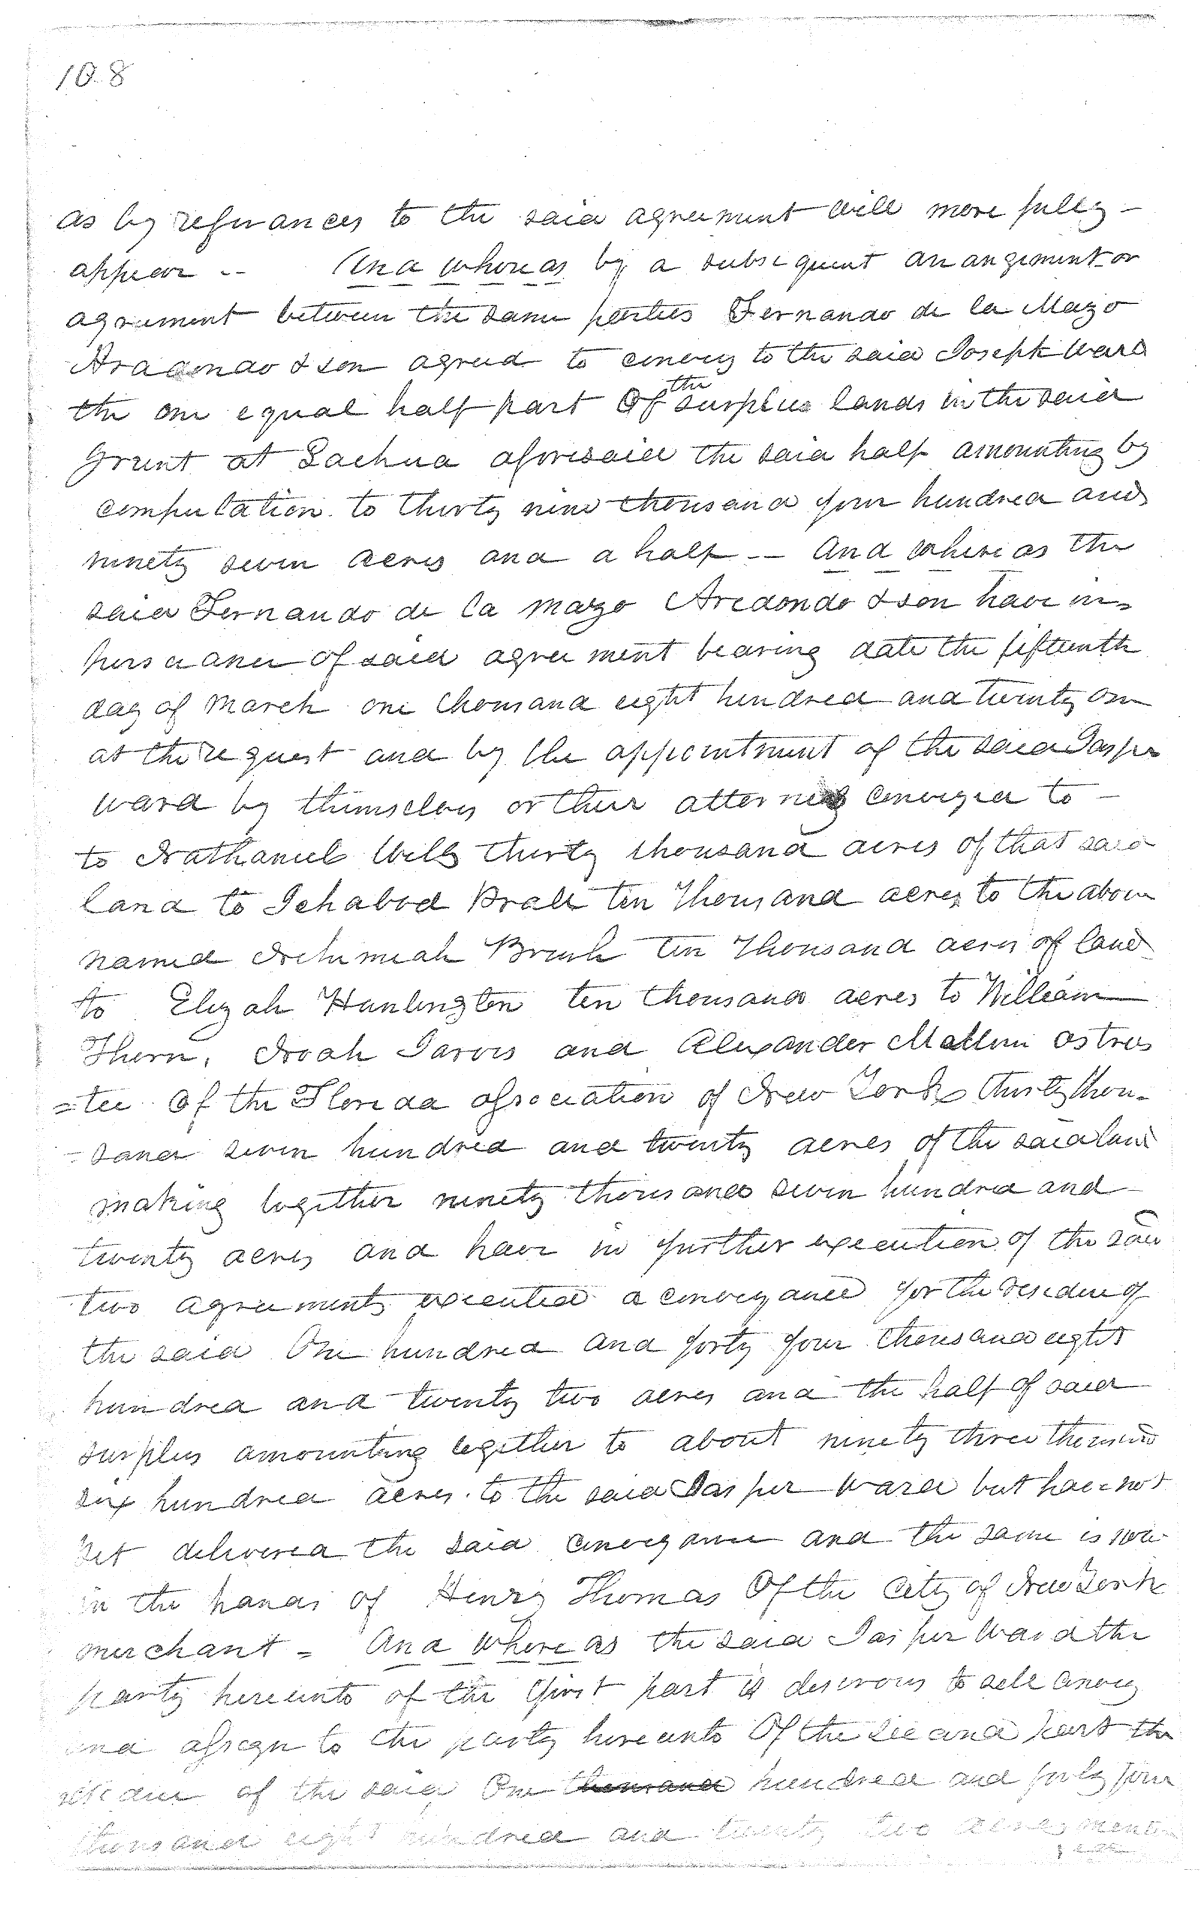 108
as by refurances to the said agreement will more fully -
appear -- And whereas by a subsequent arrangement or
agrument between the same parties Fernando de la Mazo
Aradondo & son agreed to convey to the said Joseph Ward
the one equal half part Of the surplus lands in the said
Grunt at Lachua aforesaid the said half amounting by
computation to thirty nine thousand four hundred and
ninety seven acres and a half -- And whereas the
said Fernando de la Mazo Aredondo & son have in=
persuance of said agreement bearing date the fifteenth
day of March one thousand eight hundred and twenty one
at the request and by the appointment of the said Jasper
Ward by themselves or their attorney conveyed to -
to Nathaniel Wells thirty thousand acres of that said
land to Ichabod Prall ten Thousand acres to the above
named Nehimiah Brush ten Thousand acres of land
to Elizah Huntington ten thousand acres to William
Thorn, Noah Jarvis and Alexander McCollum as trus
=tee Of the Florida association of New York thirty thou-
=sand seven hundred and twenty acres of the said land
making together ninety thousand seven hundred and -
twenty acres and have in further execution of the said
two agreements executed a conveyance for the residue of
the said One hundred and forty four thousand eight
hundred and twenty two acres and the half of said
surplus amounting together to about ninety three thousand
six hundred acres to the said Jasper Ward but have not
yet delivered the said conveyance and the same is now
in the hands of Henry Thomas Of the City of New York
merchant = And where as the said Jasper Ward the
party hereunto of the first part is desirous to sell convey
and assign to the party hereunto Of the second part the
residue of the said One thousand hundred and forty four
thousand eight hundred and twenty two acres mentio